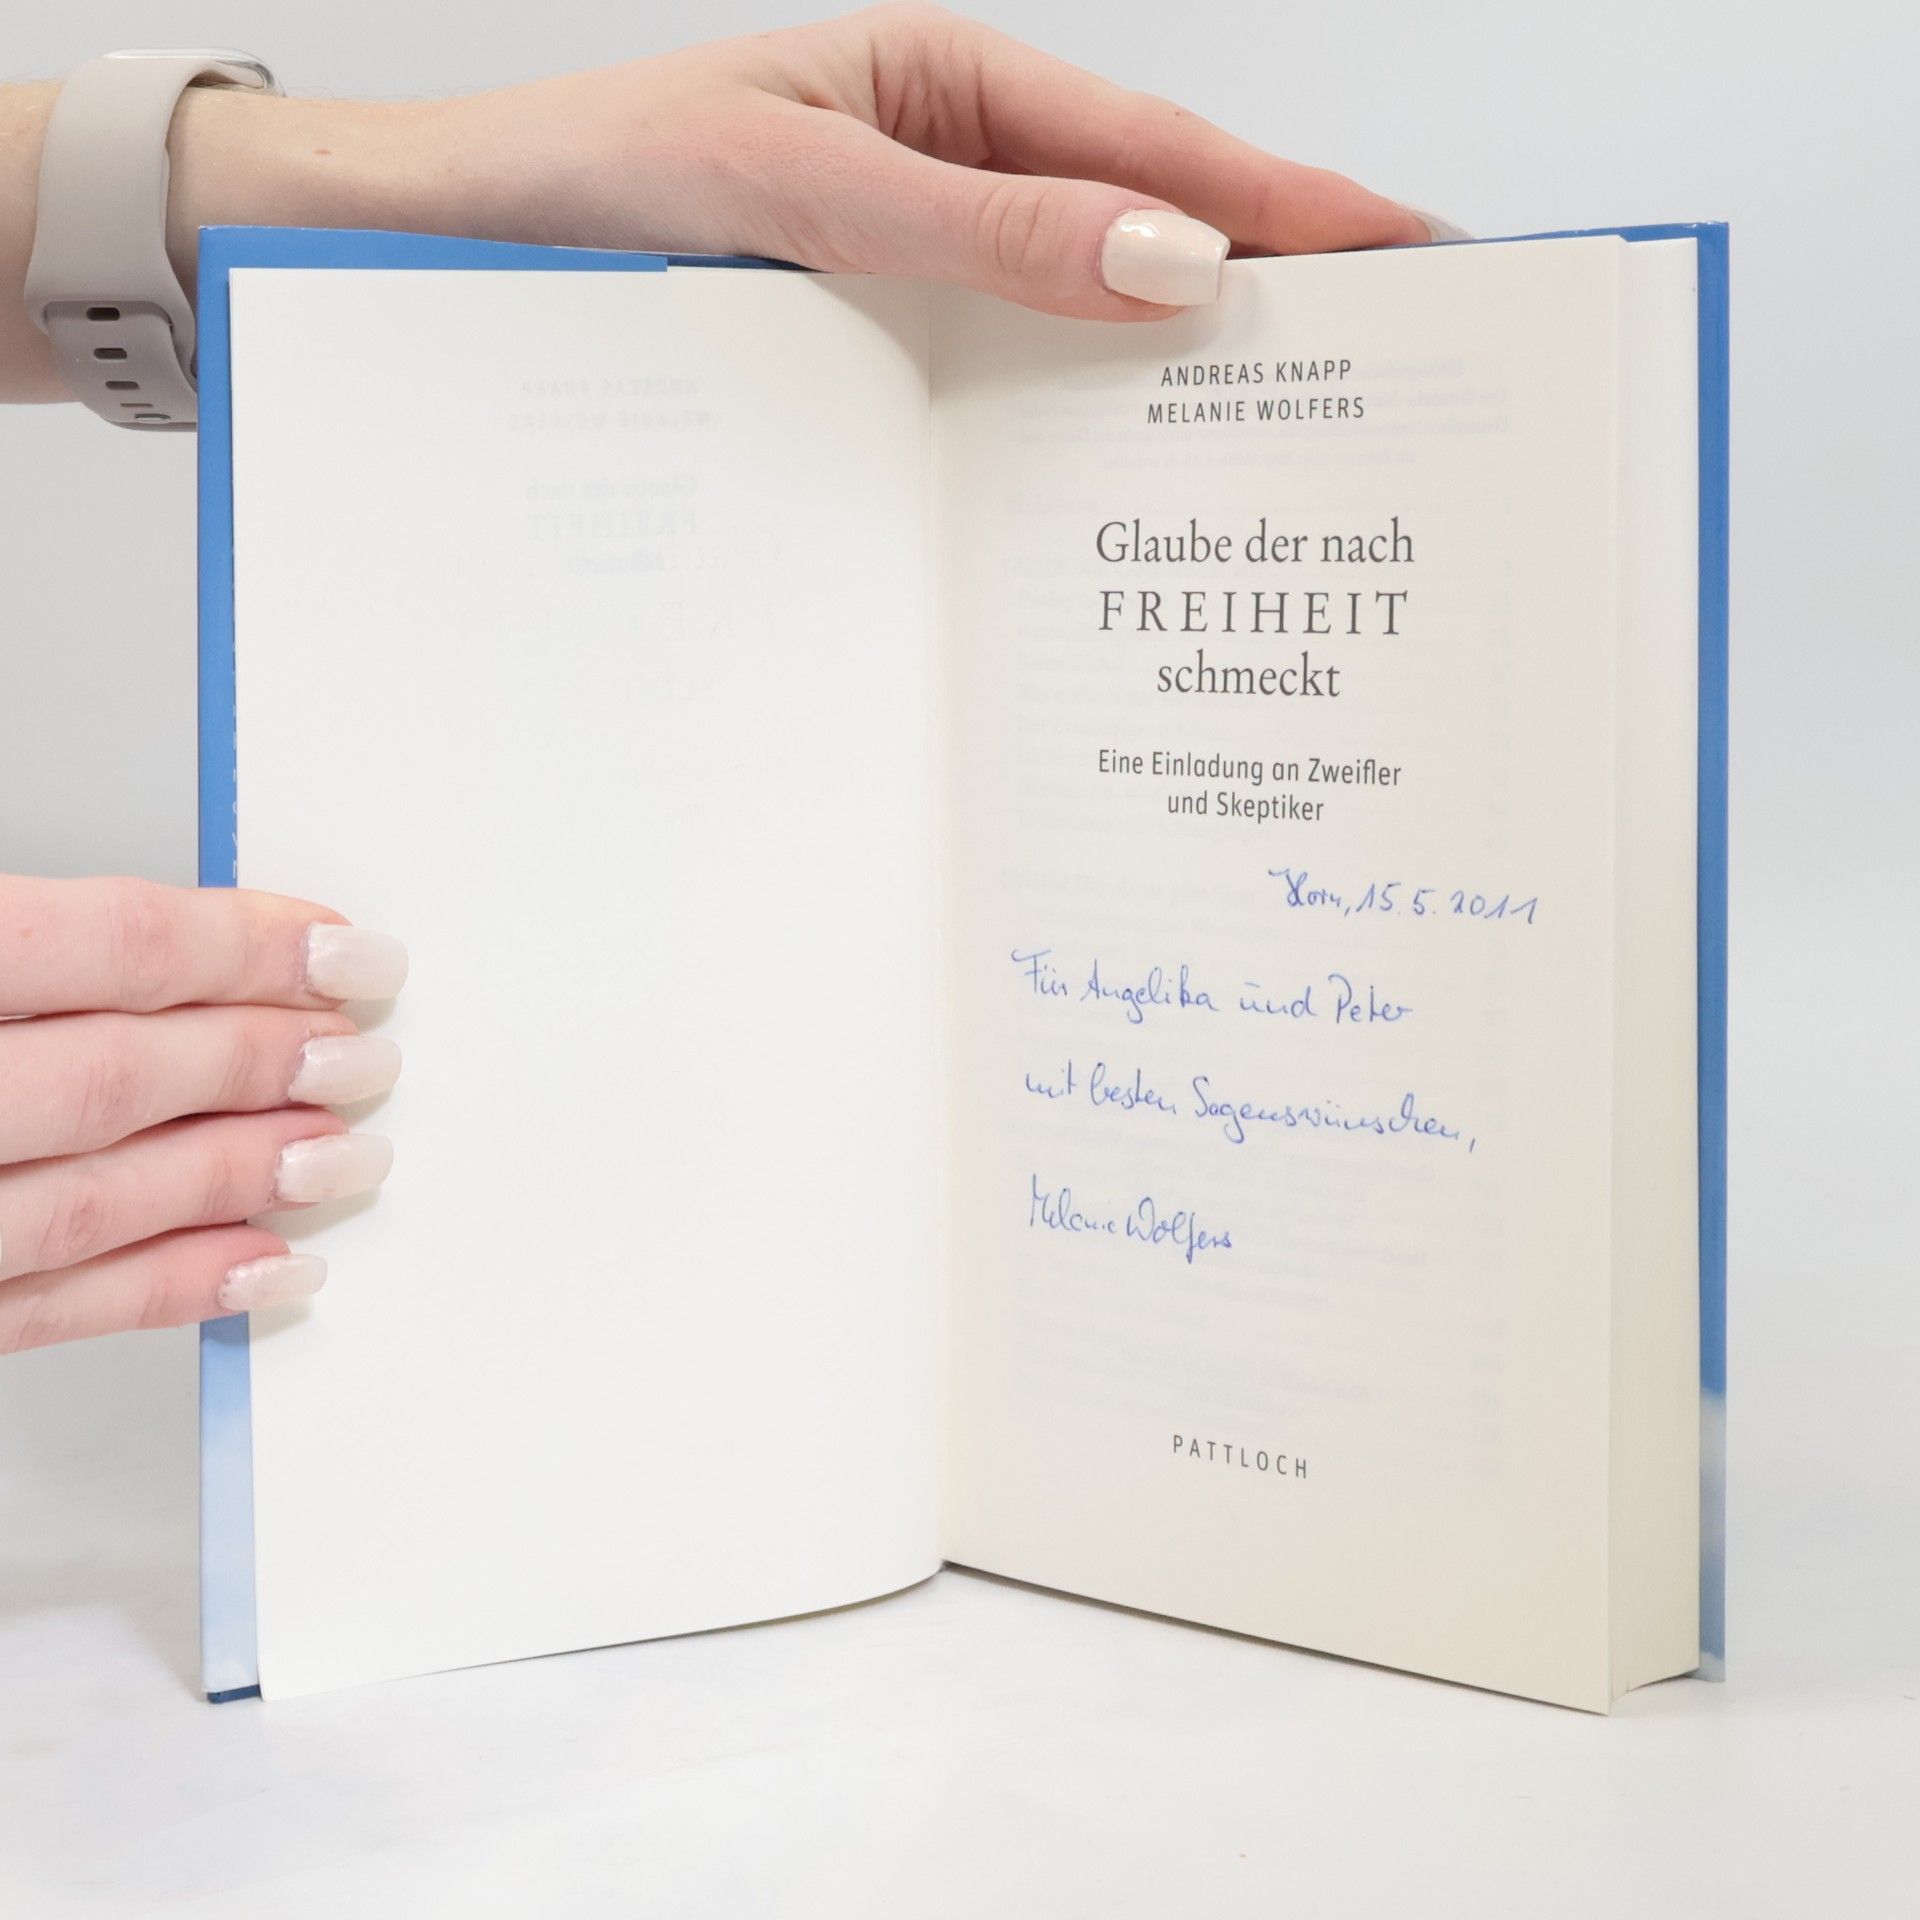 ANDREAS KNAPP
MELANIE WOLFERS
Glaube der nach
FREIHEIT
schmeckt
Eine Einladung an Zweifler
und Skeptiker
Horn, 15.5.2011
Für Angelika und Peter
mit besten Segenswünschen,
Melanie Wolfers
PATTLOCH